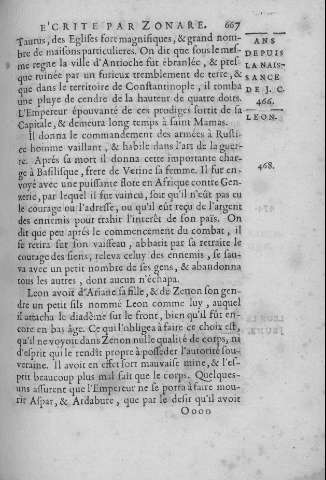 E'CRITE PAR ZONARE. 667
Taurus, des Eglises fort magnifiques, & grand nom-
bre de maisons particulieres. On dit que sous le mes-
me regne la ville d'Antioche fut ébranlée, & pres-
que ruinée par un furieux tremblement de terre, &
que dans le territoire de Constantinople, il tomba
une pluye de cendre de la hauteur de quatre doits.
L'Empereur épouvanté de ces prodiges sortit de la
Capitale, & demeura long temps à saint Mamas.
Il donna le commandement des armées à Rusti-
ce homme vaillant, & habile dans l'art de la guer-
re. Aprés sa mort il donna cette importante char-
ge à Basilisque, frere de Verine sa femme. Il fut en-
voyé avec une puissante flote en Afrique contre Gen-
zeric, par lequel il fut vaincu, soit qu'il n'eût pas eu
le courage ou l'adresse, ou qu'il eût reçu de l'argent
des ennemis pour trahir l'interêt de son païs. On
dit que peu aprés le commencement du combat, il
se retira sur son vaisseau, abbatit par sa retraite le
courage des siens, releva celuy des ennemis, se sau-
va avec un petit nombre de ses gens, & abandonna
tous les autres, dont aucun n'échapa.
Leon avoit d'Ariane sa fille, & de Zenon son gen-
dre un petit fils nommé Leon comme luy, auquel
il attacha le diadême sur le front, bien qu'il fût en-
core en bas âge. Ce qui l'obligea à faire ce choix est,
qu'il ne voyoit dans Zenon nulle qualité de corps, ni
d'esprit qui le rendît propre à posseder l'autorité sou-
veraine. Il avoit en effet fort mauvaise mine, & l'es-
prit beaucoup plus mal fait que le corps. Quelques-
uns assurent que l'Empereur ne se porta à faire mou-
rir Aspar, & Ardabure, que par le desir qu'il avoit
Oooo
ANS
DEPUIS
LA NAIS-
SANCE
DE J. C.
466.
LEON.
468.